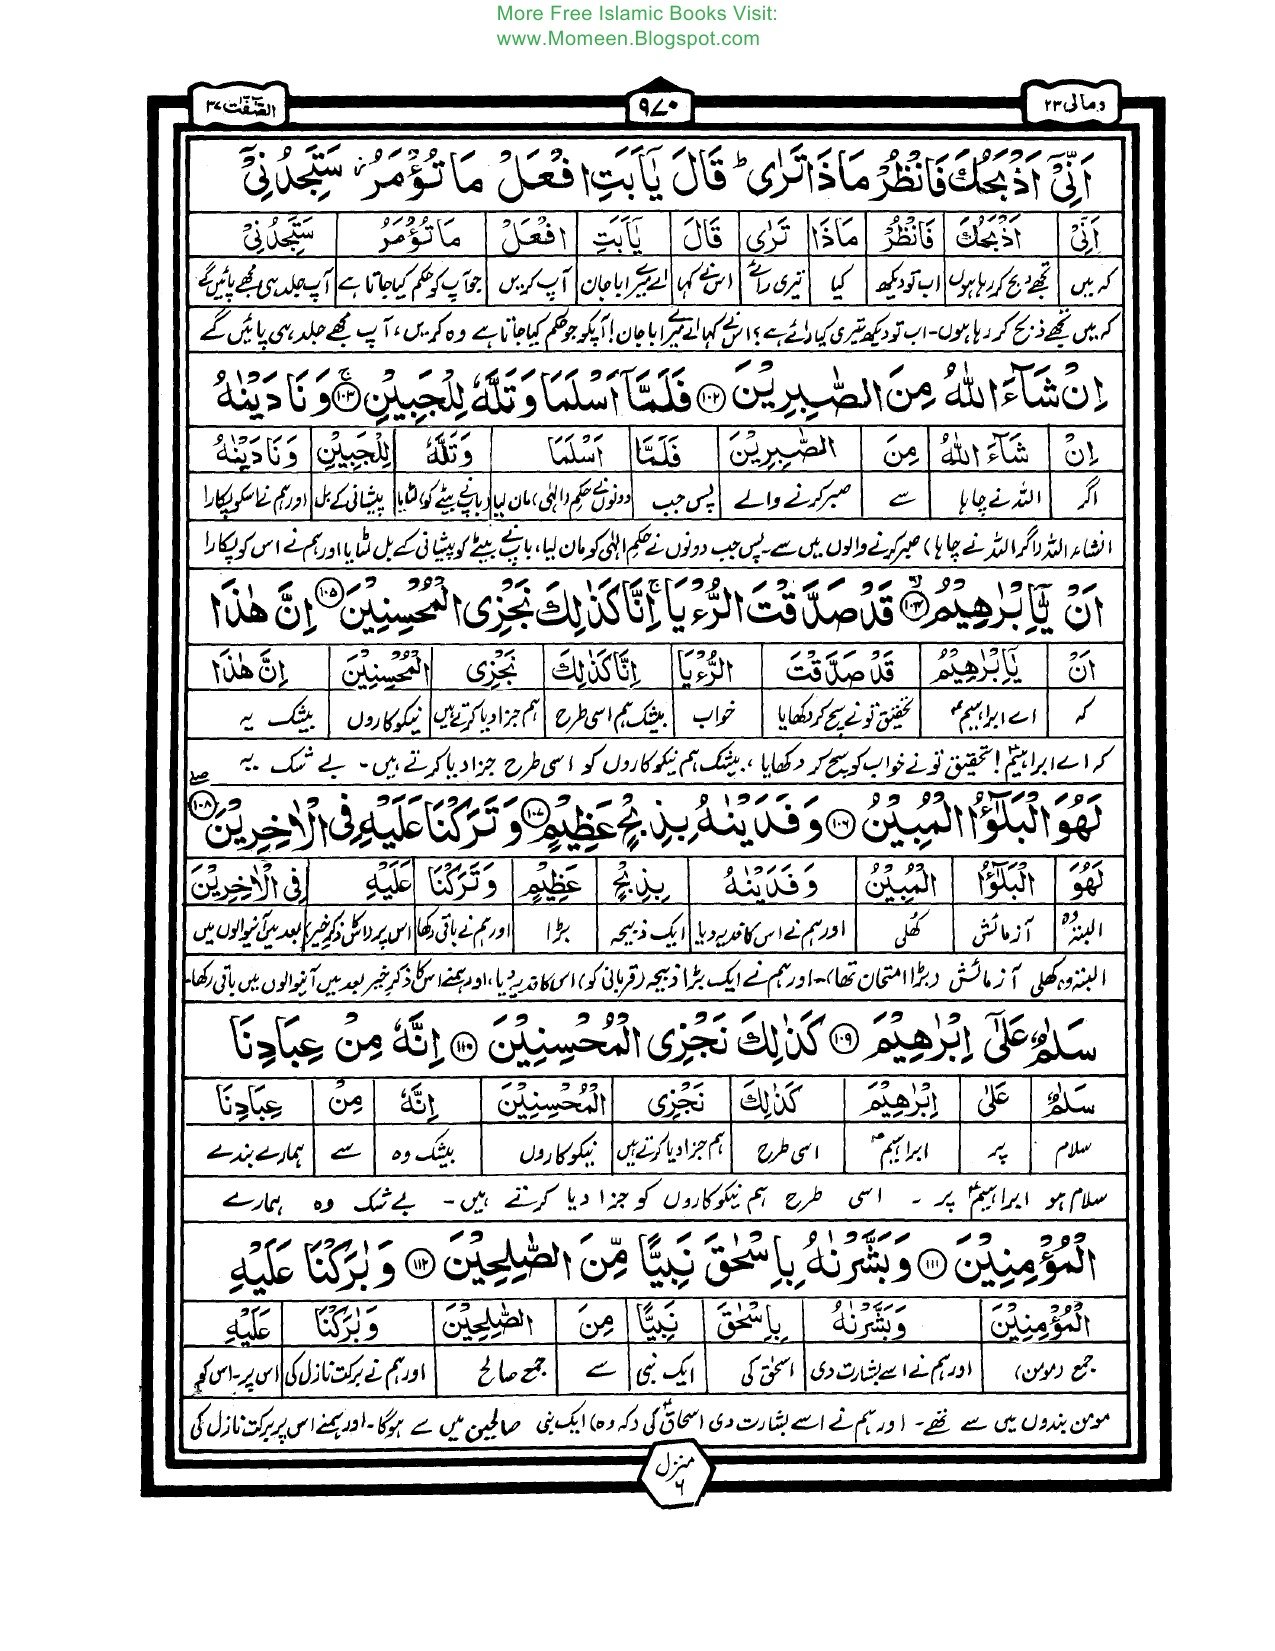 More Free Islamic Books Visit:
www.Momeen.Blogspot.com
ومالی ٢٣
٩٧٠
الصّٰٓفّٰت ٣٧
اَنِّیْۤ اَذْبَحُكَ فَانْظُرْ مَاذَا تَرٰی ؕ قَالَ یٰۤاَبَتِ افْعَلْ مَا تُؤْمَرُ ؗ سَتَجِدُنِیْۤ
اَنِّیْ اَذْبَحُكَ فَانْظُرْ مَاذَا تَرٰی قَالَ یٰۤاَبَتِ افْعَلْ مَا تُؤْمَرُ سَتَجِدُنِیْۤ
کہ میں تجھے ذبح کر رہا ہوں اب تو دیکھ کیا تیری رائے اس نے کہا اے میرے ابا جان آپ کریں جو آپ کو حکم کیا جاتا ہے آپ جلد ہی مجھے پائیں گے
کہ میں تجھے ذبح کر رہا ہوں۔ اب تو دیکھ تیری کیا رائے ہے؟ اس نے کہا اے میرے ابا جان! آپکو جو حکم کیا جاتا ہے وہ کریں، آپ مجھے جلد ہی پائیں گے
اِنْ شَآءَ اللّٰهُ مِنَ الصّٰبِرِیْنَ ١٠٢ فَلَمَّاۤ اَسْلَمَا وَتَلَّهٗ لِلْجَبِیْنِ ۚ ١٠٣ وَنَادَیْنٰهُ
اِنْ شَآءَ اللّٰهُ مِنَ الصّٰبِرِیْنَ فَلَمَّاۤ اَسْلَمَا وَتَلَّهٗ لِلْجَبِیْنِ وَنَادَیْنٰهُ
اگر اللہ نے چاہا سے صبر کرنے والے پس جب دونوں نے حکم (الٰہی) مان لیا (باپ نے بیٹے کو) لٹایا پیشانی کے بل اور ہم نے اسکو پکارا
انشاء اللہ (اگر اللہ نے چاہا) صبر کرنے والوں میں سے۔ پس جب دونوں نے حکم الٰہی کو مان لیا، باپ نے بیٹے کو پیشانی کے بل لٹایا اور ہم نے اس کو پکارا
اَنْ یّٰۤاِبْرٰهِیْمُ ۙ ١٠٤ قَدْ صَدَّقْتَ الرُّءْیَا ۚ اِنَّا كَذٰلِكَ نَجْزِی الْمُحْسِنِیْنَ ١٠٥ اِنَّ هٰذَا
اَنْ یّٰۤاِبْرٰهِیْمُ قَدْ صَدَّقْتَ الرُّءْیَا اِنَّا كَذٰلِكَ نَجْزِی الْمُحْسِنِیْنَ اِنَّ هٰذَا
کہ اے ابراہیمؑ تحقیق تو نے سچ کر دکھایا خواب بیشک ہم اسی طرح ہم جزا دیا کرتے ہیں نیکو کاروں بیشک یہ
کہ اے ابراہیمؑ! تحقیق تو نے خواب کو سچ کر دکھایا، بیشک ہم نیکو کاروں کو اسی طرح جزا دیا کرتے ہیں۔ بے شک یہ
لَهُوَ الْبَلٰٓؤُا الْمُبِیْنُ ١٠٦ وَفَدَیْنٰهُ بِذِبْحٍ عَظِیْمٍ ١٠٧ وَتَرَكْنَا عَلَیْهِ فِی الْاٰخِرِیْنَ ۖ ١٠٨
لَهُوَ الْبَلٰٓؤُا الْمُبِیْنُ وَفَدَیْنٰهُ بِذِبْحٍ عَظِیْمٍ وَتَرَكْنَا عَلَیْهِ فِی الْاٰخِرِیْنَ
البتہ وہ آزمائش کھلی اور ہم نے اس کا فدیہ دیا ایک ذبیحہ بڑا اور ہم نے باقی رکھا اس پر (اس کا ذکر خیر) بعد میں آنیوالوں میں
البتہ وہ کھلی آزمائش (بڑا امتحان تھا)۔ اور ہم نے ایک بڑا ذبیحہ (قربانی کو) اس کا فدیہ دیا، اور ہمنے اس کا ذکر خیر بعد میں آنیوالوں میں باقی رکھا۔
سَلٰمٌ عَلٰۤی اِبْرٰهِیْمَ ١٠٩ كَذٰلِكَ نَجْزِی الْمُحْسِنِیْنَ ١١٠ اِنَّهٗ مِنْ عِبَادِنَا
سَلٰمٌ عَلٰی اِبْرٰهِیْمَ كَذٰلِكَ نَجْزِی الْمُحْسِنِیْنَ اِنَّهٗ مِنْ عِبَادِنَا
سلام پر ابراہیمؑ اسی طرح ہم جزا دیا کرتے ہیں نیکو کاروں بیشک وہ سے ہمارے بندے
سلام ہو ابراہیمؑ پر ۔ اسی طرح ہم نیکو کاروں کو جزا دیا کرتے ہیں۔ بے شک وہ ہمارے
الْمُؤْمِنِیْنَ ١١١ وَبَشَّرْنٰهُ بِاِسْحٰقَ نَبِیًّا مِّنَ الصّٰلِحِیْنَ ١١٢ وَبٰرَكْنَا عَلَیْهِ
الْمُؤْمِنِیْنَ وَبَشَّرْنٰهُ بِاِسْحٰقَ نَبِیًّا مِنَ الصّٰلِحِیْنَ وَبٰرَكْنَا عَلَیْهِ
جمع (مومن) اور ہم نے اسے بشارت دی اسحٰق کی ایک نبی سے جمع صالح اور ہم نے برکت نازل کی اس پر۔ اس کو
مومن بندوں میں سے تھے۔ اور ہم نے اسے بشارت دی اسحاقؑ کی (کہ وہ) ایک نبی صالحین میں سے ہوگا۔ اور ہمنے اس پر برکت نازل کی
منزل ٦